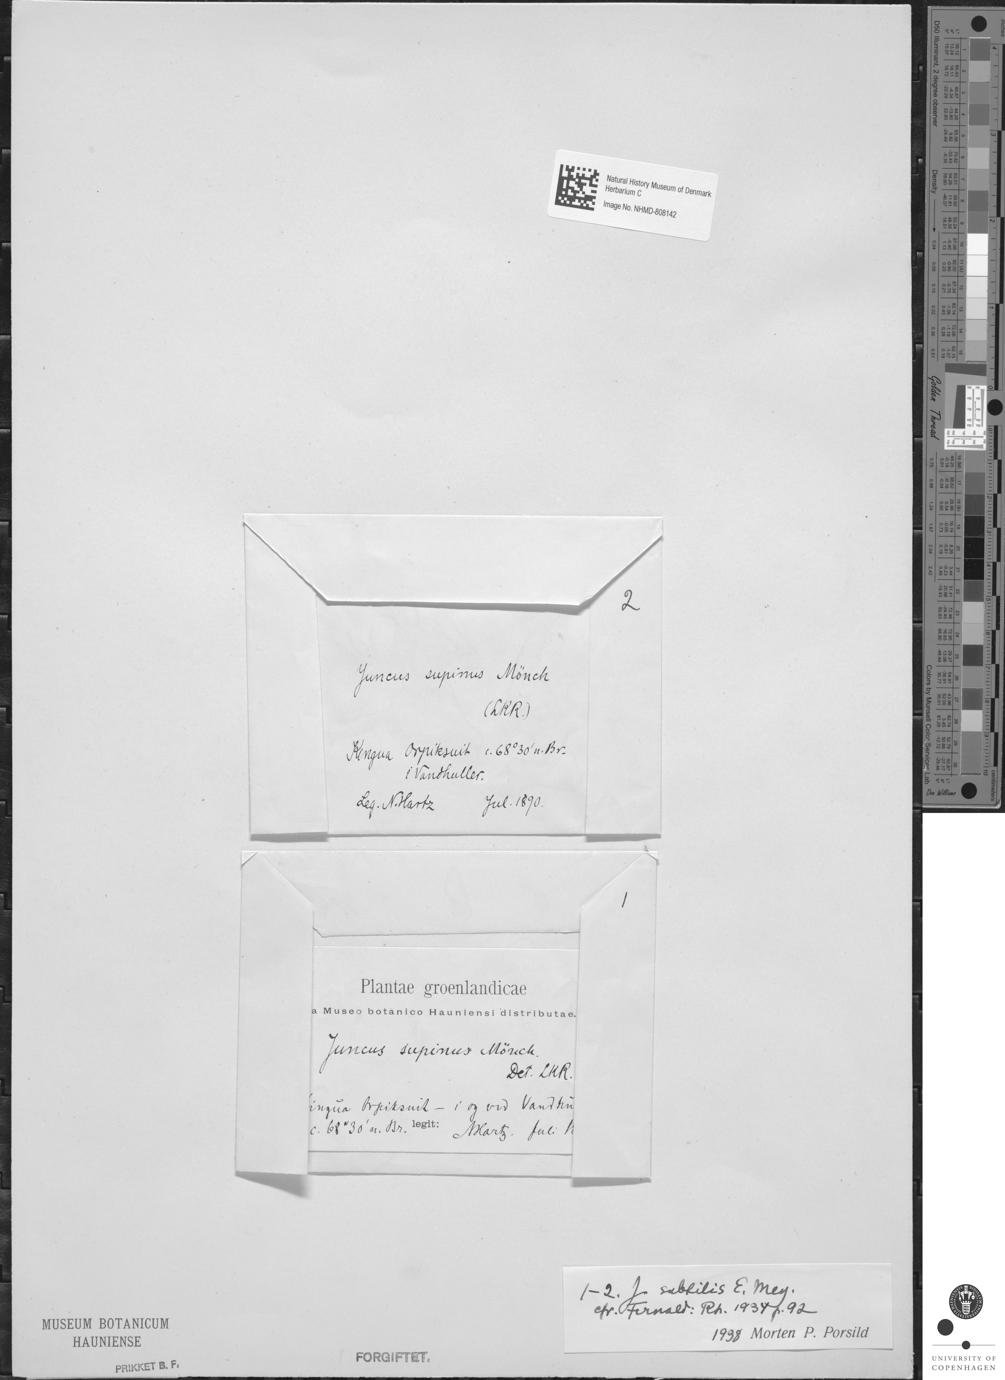 Natural History Museum of Denmark
Herbarium C
Image No. NHMD-808142
2
Juncus supinus Mönch
(LKR.)
Kingua Orpiksuit c. 68°30' n. Br.
i Vandhuller.
Leg. N. Hartz Jul. 1890.
1
Plantae groenlandicae
a Museo botanico Hauniensi distributae.
Juncus supinus Mönch.
Det. LKR.
ingua Orpiksuit — i og ved Vandhu
c. 68°30' n. Br. legit: N Hartz. Juli
1-2. J. subtilis E. Mey.
cfr. Fernald: Rh. 1934 p. 92
1938 Morten P. Porsild
MUSEUM BOTANICUM
HAUNIENSE
PRIKKET B. F.
FORGIFTET.
D50 Illuminant, 2 degree observer
Density
Golden Thread
Colors by Munsell Color Services Lab
UNIVERSITY OF
COPENHAGEN